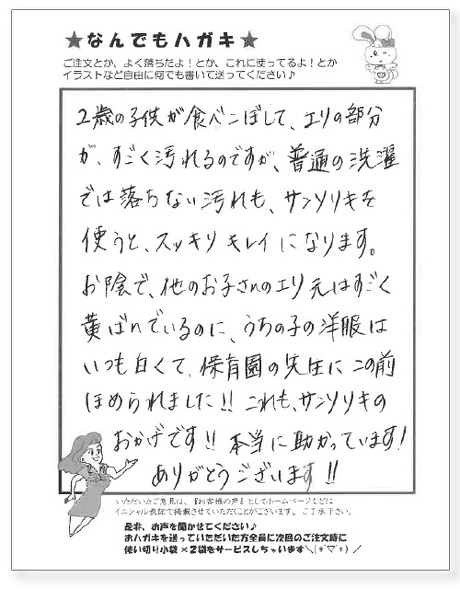 ★なんでもハガキ★
ご注文とか、よく落ちたよ！とか、これに使ってるよ！とか
イラストなど自由に何でも書いて送ってください♪
2歳の子供が食べこぼして、エリの部分
が、すごく汚れるのですが、普通の洗濯
では落ちない汚れも、サンソリキを
使うと、スッキリキレイになります。
お陰で、他のお子さんのエリ元はすごく
黄ばんでいるのに、うちの子の洋服は
いつも白くて、保育園の先生にこの前
ほめられました!! これも、サンソリキの
おかげです!! 本当に助かっています!
ありがとうございます!!
いただいたご意見は、『お客様の声』としてホームページなどに
イニシャル表記で掲載させていただくことがございます。ご了承下さい。
是非、お声を聞かせてください♪
おハガキを送っていただいた方全員に次回のご注文時に
使い切り小袋×2袋をサービスしちゃいます＼(*^▽^*)／